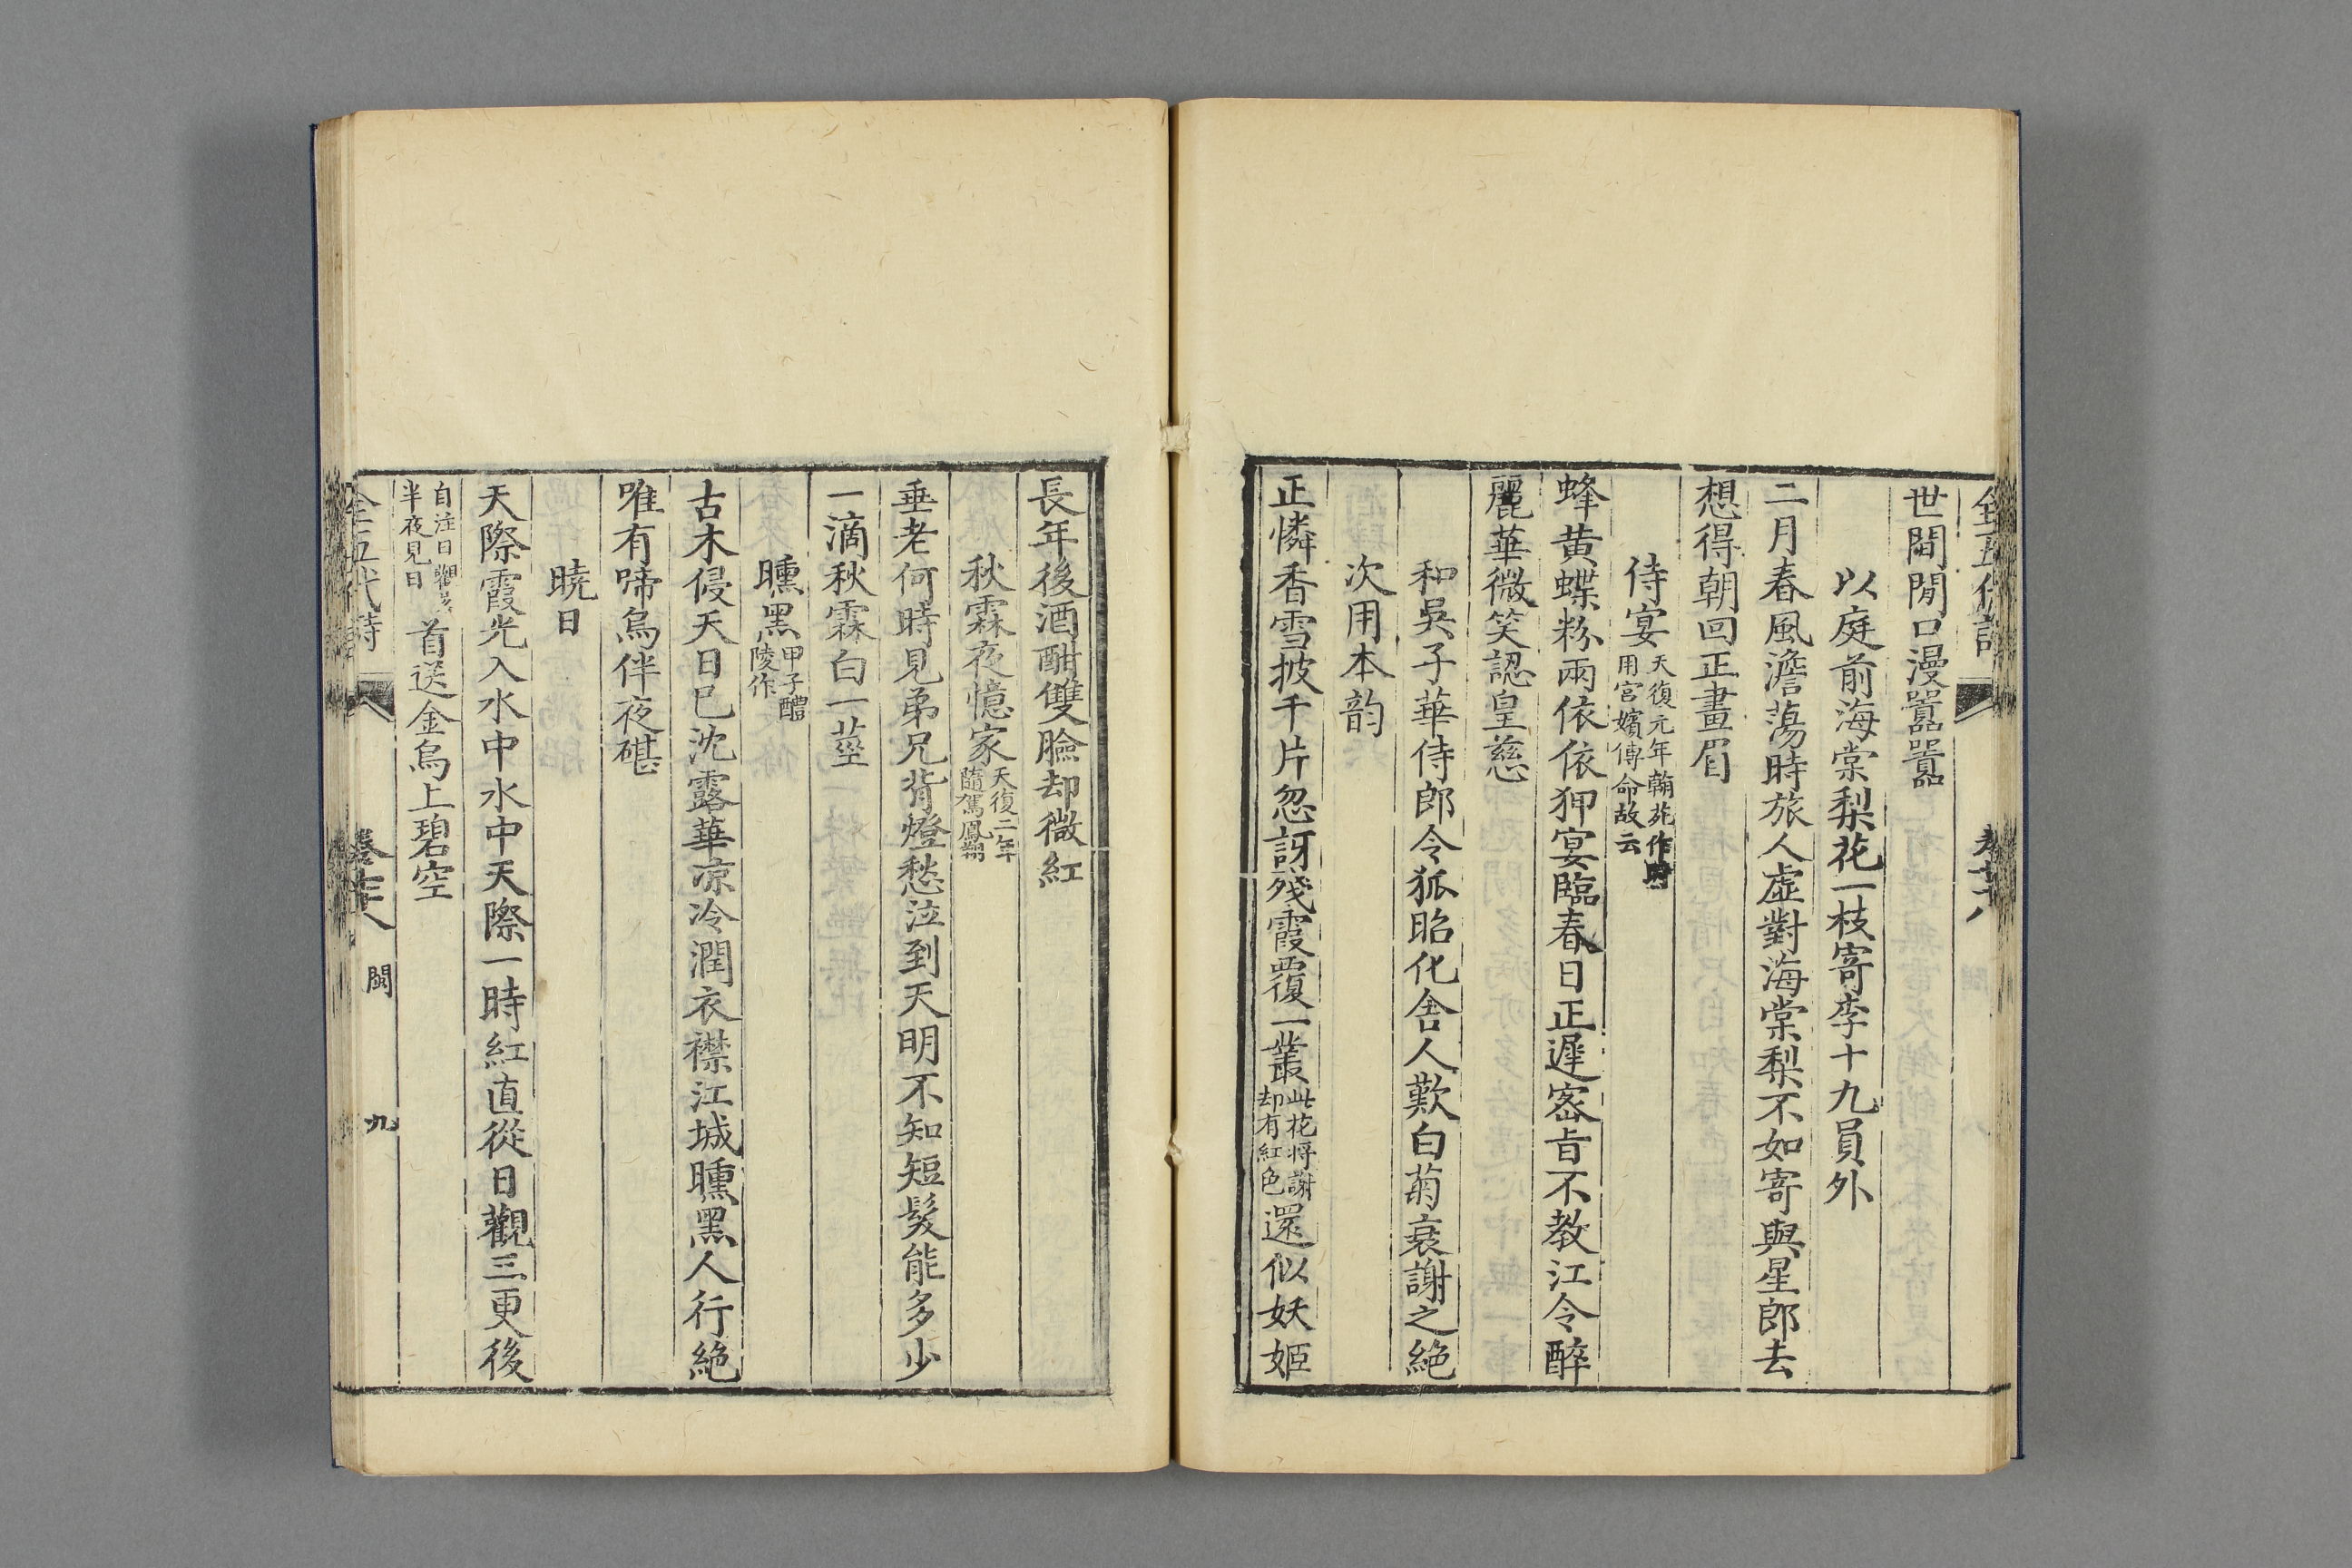 全五代詩 卷七十八
世間閒口漫囂囂
以庭前海棠梨花一枝寄李十九員外
二月春風澹蕩時旅人虛對海棠梨不如寄與星郎去
想得朝回正畫眉
侍宴天復元年翰苑作時用宮嬪傳命故云
蜂黄蝶粉兩依依狎宴臨春日正遲密旨不教江令醉
麗華微笑認皇慈
和吳子華侍郎令狐昭化舍人歎白菊衰謝之絶
次用本韵
正憐香雪披千片忽訝殘霞覆一叢此花將謝却有紅色還似妖姬
長年後酒酣雙臉却微紅
秋霖夜憶家天復二年隨駕鳳翔
垂老何時見弟兄背燈愁泣到天明不知短髮能多少
一滴秋霖白一莖
曛黑甲子醴陵作
古木侵天日已沈露華凉冷潤衣襟江城曛黑人行絶
唯有啼烏伴夜碪
曉日
天際霞光入水中水中天際一時紅直從日觀三更後
自注日觀半夜見日首送金烏上碧空
全五代詩 卷七十八 閩 九